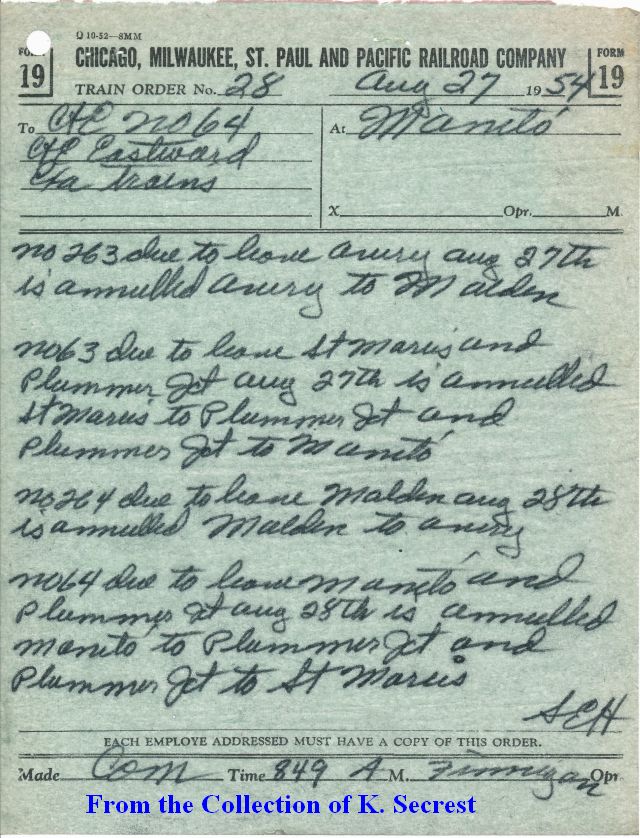 Q 10-52—8MM
FORM 19
CHICAGO, MILWAUKEE, ST. PAUL AND PACIFIC RAILROAD COMPANY
FORM 19
TRAIN ORDER No. 28 Aug 27 1954
To C&E no 64
C&E Eastward
Exa trains
At Manito
X Opr. M
no 263 due to leave avery aug 27th
is annulled avery to Malden
no 63 due to leave St Maries and
Plummer Jct aug 27th is annulled
St Maries to Plummer Jct and
Plummer Jct to Manito
no 264 due to leave Malden aug 28th
is annulled Malden to avery
no 64 due to leave Manito and
Plummer Jct aug 28th is annulled
manito to Plummer Jct and
Plummer Jct to St Maries
SEH
EACH EMPLOYE ADDRESSED MUST HAVE A COPY OF THIS ORDER.
Made Com Time 849 A M. Finnigan Opr
From the Collection of K. Secrest